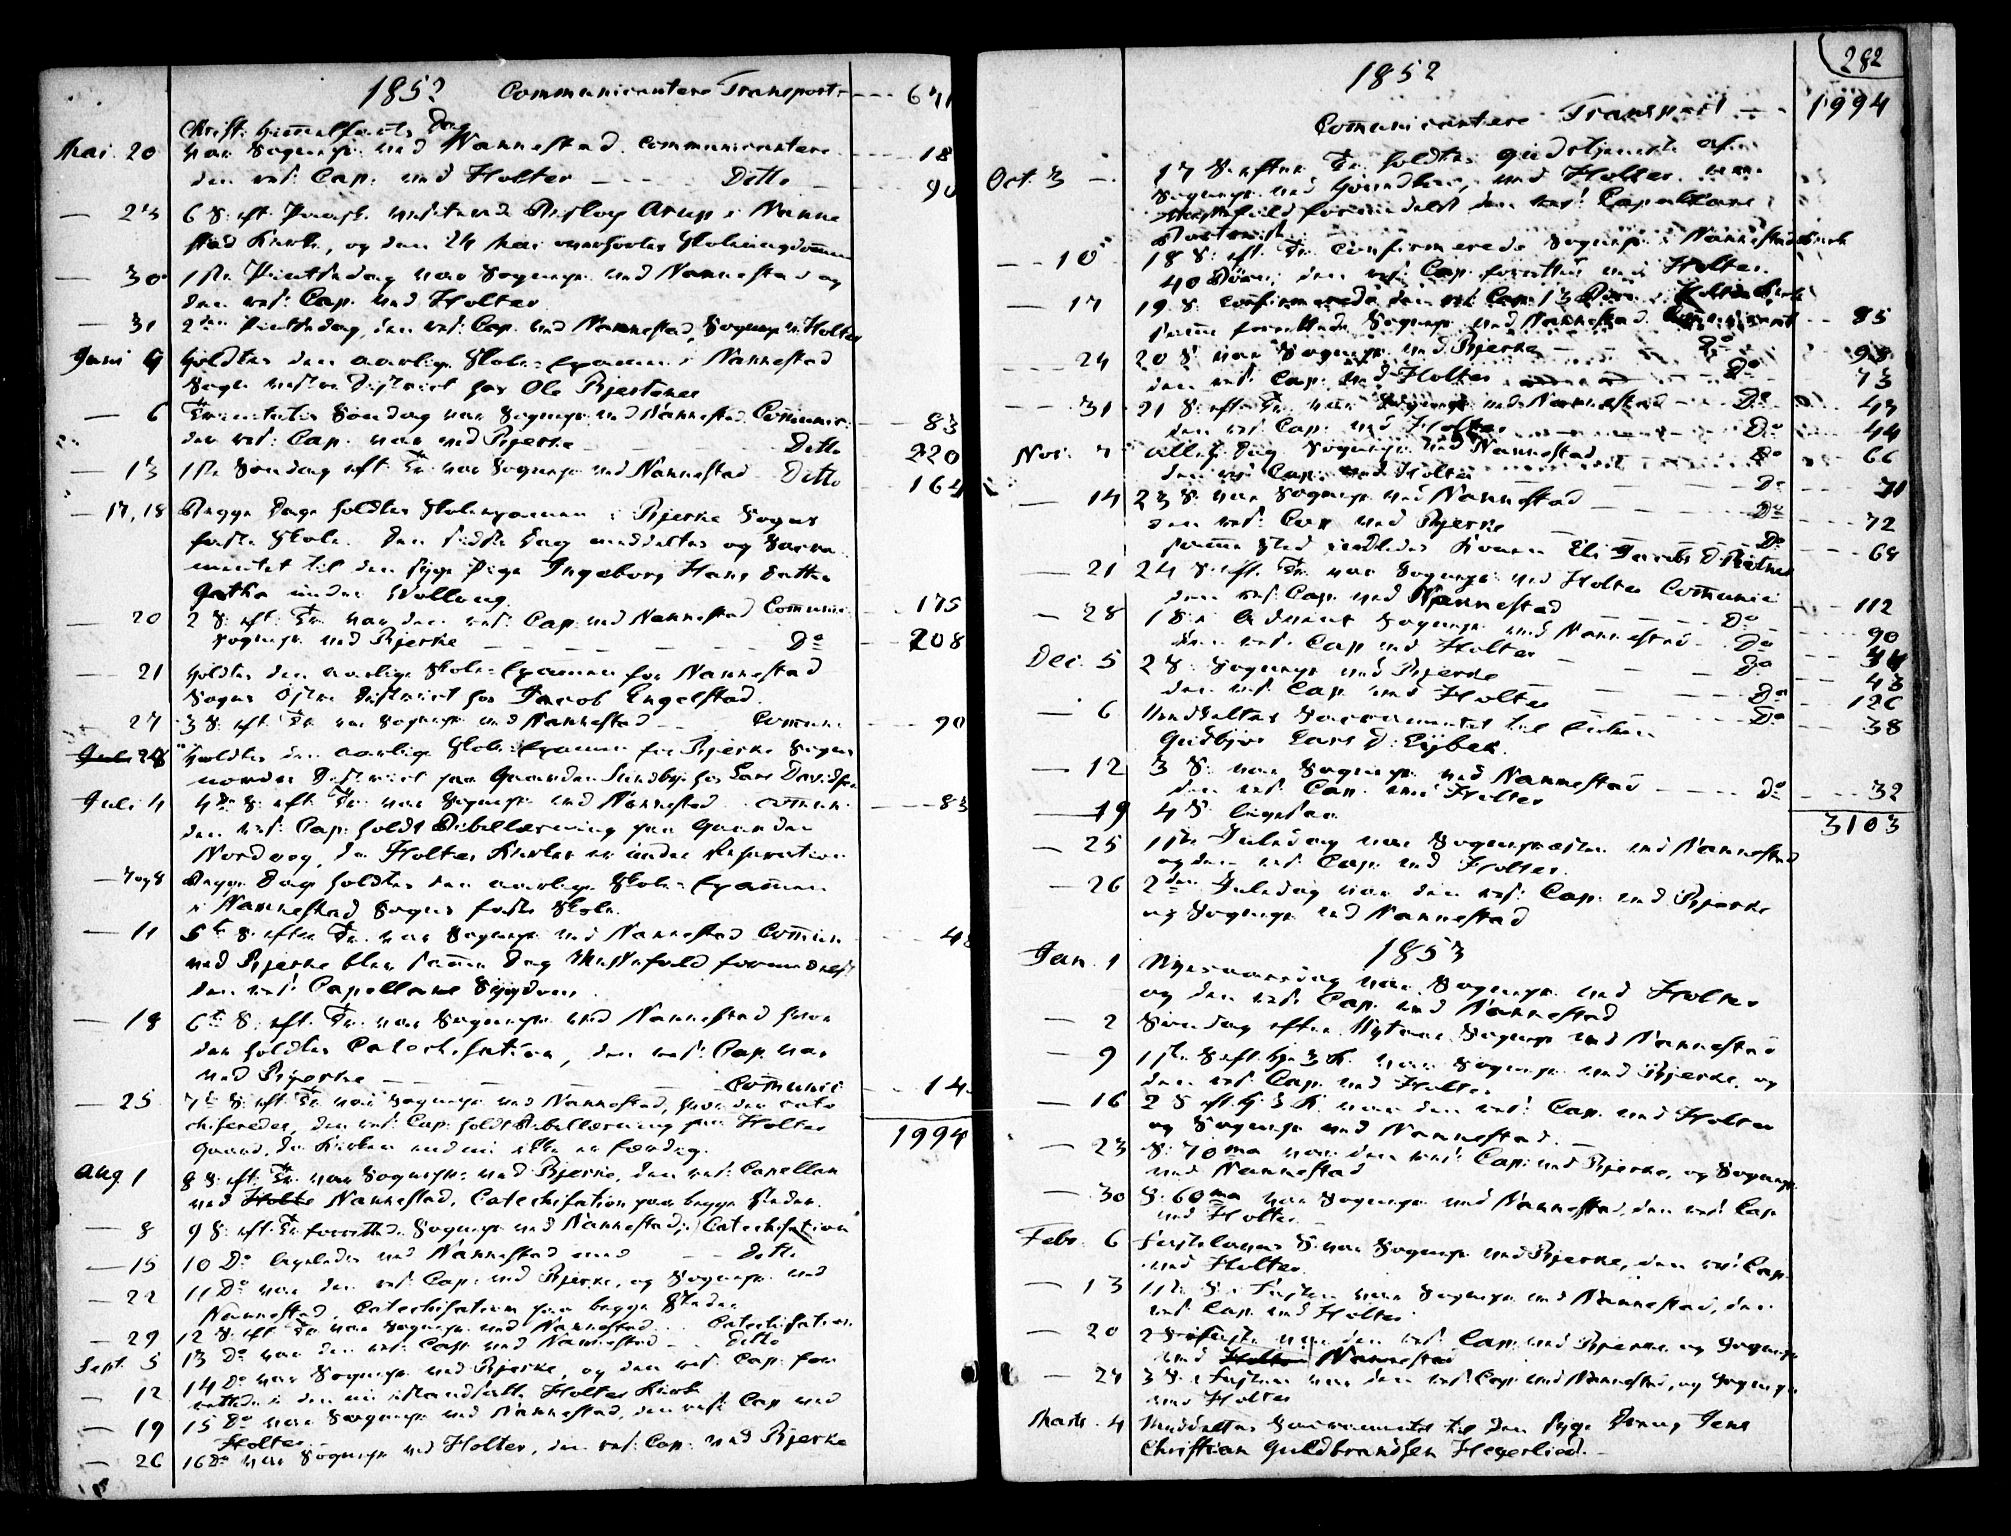 1852 Communicantere Transport --- 671
Christi Himmelfarts Dag
Mai 20 var Sognepr. ved Nannestad. Communicantere --- 18
den res: Cap: ved Holter --- Ditto --- 90
— 23 6 S: eft. Paask. visiterede Biskop Arup i Nanne
stad Kirke, og den 24 Mai
— 30 1ste Pintsedag var Sognepr. ved Nannestad og
den res: Cap. ved Holter
— 31 2den Pintsedag, den res: Cap. ved Nannestad, Sognepr. v. Holter
Juni holdtes den aarlige Skole-Examen i Nannestad
Sogns vestre District hos Ole
— 6 Trinitatis Søndag var Sognepr. ved Nannestad Communic: --- 83
den res: Cap. var ved Bjerke --- Ditto --- 220
— 13 1ste Søndag eft. Tr. var Sognepr. ved Nannestad Ditto --- 164
— 17, 18 Begge Dage holdtes Skoleexamen i Bjerke Sogns
faste Skole. Den sidste Dag meddeltes og Sacra-
mentet til den syge Pige Ingeborg Hans Datter
under
— 20 2 S. eft. Tr. var den res: Cap. ved Nannestad Communic: --- 175
Sognepr. ved Bjerke --- Do --- 208
— 21 holdtes den aarlige Skole-Examen for Nannestad
Sogns Østre District hos Jacob Engelstad.
— 27 3 S. eft. Tr. var Sognepr. ved Nannestad --- Commun. --- 90
Juli holdtes den aarlige Skole-Examen for Bjerke Sogns
nordre District paa Gaarden Sundby hos Lars Davidsen
Juli 4 4de S. eft. Tr. var Sognepr. ved Nannestad commun. --- 83
den res: Cap: holdt Bibellæsning paa Gaarden
Nordvog, da Holter Kirke er under Reparation
— 7 og 8 Begge Dage holdtes den aarlige Skole-Examen
i Nannestad Sogns faste Skole.
— 11 5te S. efter Tr. var Sognepr. ved Nannestad Commun. --- 48
ved Bjerke blev samme Dag Messefald formedelst
den res: Capellans Sygdom.
— 18 6te S. eft. Tr. var Sognepr. ved Nannestad hvor
der holdtes Catechisation, den res: Cap. var
ved Bjerke --- Communic: --- 14
— 25 7de S. eft. Tr. var Sognepr. ved Nannestad, hvor der cate
chiseredes, den res: Cap: holdt Bibellæsning paa Holter
Gaard, da Kirken endnu ikke er færdig. 1994
Aug 1 8 S. eft. Tr. var Sognepr: ved Bjerke, den res: Capellan
ved Holte Nannestad, Catechisation paa begge Steder.
— 8 9 S. eft. Tr. forrettede Sognepr. ved Nannestad; Catechisation
— 15 10 Do ligeledes ved Nannestad med --- ditto
— 22 11 Do var den res: Cap: ved Bjerke, og Sognepr. ved
Nannestad, Catechisation paa begge Steder
— 29 12 S. eft. Tr. var Sognepr. ved Nannestad .. Catechisation
Sept. 5 13 Do var den res. Cap. ved Nannestad -- Ditto
— 12 14 Do var Sognepr. ved Bjerke, og den res: Cap. for
rettede i den nu istandsatte Holter Kirke
— 19 15 Do var Sognepr. ved Nannestad, den res: Cap ved
Holter
— 26 16 Do var Sognepr. ved Holter, den res: Cap: ved Bjerke
282
1852
Communicantere Transport --- 1994
Oct. 3 17 S. efter Tr. holdtes Gudstjeneste af
Sognepr. ved ved Holter var
Messefald formedelst den res: Capellans
— 10 18 S. eft. Tr. confirmerede Sognepr. i Nannestad Kirk
40 Børn; den res: Cap. forrettede ved Holter.
— 17 19 S. confirmerede den res: Cap. 13 Børn i Holter Kirk
samme forrettede Sognepr. ved Nannestad --- 85
— 24 20 S. var Sognepr. ved Bjerke --- Do --- 98
den res: Cap. ved Holter --- Do --- 73
— 31 21 S. eft. Tr. var Sognepr. ved Nannestad --- Do --- 43
den res: Cap: ved Holter --- Do --- 44
Nov. 7 Alle H. Dag Sognepr. ved Nannestad --- Do --- 66
den res: Cap: ved Holter --- Do --- 71
— 14 23 S. var Sognepr. ved Nannestad --- Do --- 72
den res: Cap ved Bjerke --- Do --- 68
samme Sted indledes Konen Eli Jacobs D.
— 21 24 S. eft. Tr. var Sognepr. ved Holter Communic --- 112
den res: Cap. ved Nannestad --- Do --- 90
— 28 1 S. i Advent Sognepr. ved Nannestad -- Do
den res: Cap. ved Holter --- Do --- 43
Dec. 5 2 S. Sognepr. ved Bjerke --- Do --- 126
den res. Cap. ved Holter --- Do --- 38
— 6 Meddeltes Sacramentet til Enken
Gudbjør Lars D:
— 12 3 S. var Sognepr. ved Nannestad --- Do --- 32
den res: Cap. ved Holter
— 19 4 S. ligesaa 3103
— 25 1ste Juledag var Sognepræsten ved Nannestad
og den res: Cap. ved Holter.
— 26 2den Juledag var den res: Cap. ved Bjerke
og Sognepr. ved Nannestad
1853
Jan. 1 Nytaarsdag var Sognepr. ved Holter
og den res: Cap. ved Nannestad
— 2 Søndag efter Nytaar Sognepr ved Nannestad
— 9 1ste S. eft. H. 3 K. var Sognepr ved Bjerke, og
den res: Cap. ved Holter.
— 16 2 S. eft. H. 3 K. var den res: Cap. ved Holter
og Sognepr ved Nannestad.
— 23 S. 70ma var den res: Cap: ved Bjerke, og Sognepr
ved Nannestad
— 30 S. 60ma var Sognepr ved Nannestad, den res: Cap
ved Holter.
Febr. 6 Fastelavns S. var Sognepr. ved Bjerke, den res: Cap.
ved Holter.
— 13 1ste S. i Fasten var Sognepr ved Nannestad, den
res: Cap. ved Holter
— 20 2 S. i Faste var den res: Cap. ved Bjerke og Sognepr
ved Holter Nannestad
— 27 3 S. i Fasten var den res: Cap. ved Nannestad, og Sognepr
ved Holter
Marts. 4 Meddeltes Sacramentet til den syge Dreng Jens
Christian Guldbrandsen Hegerlied.